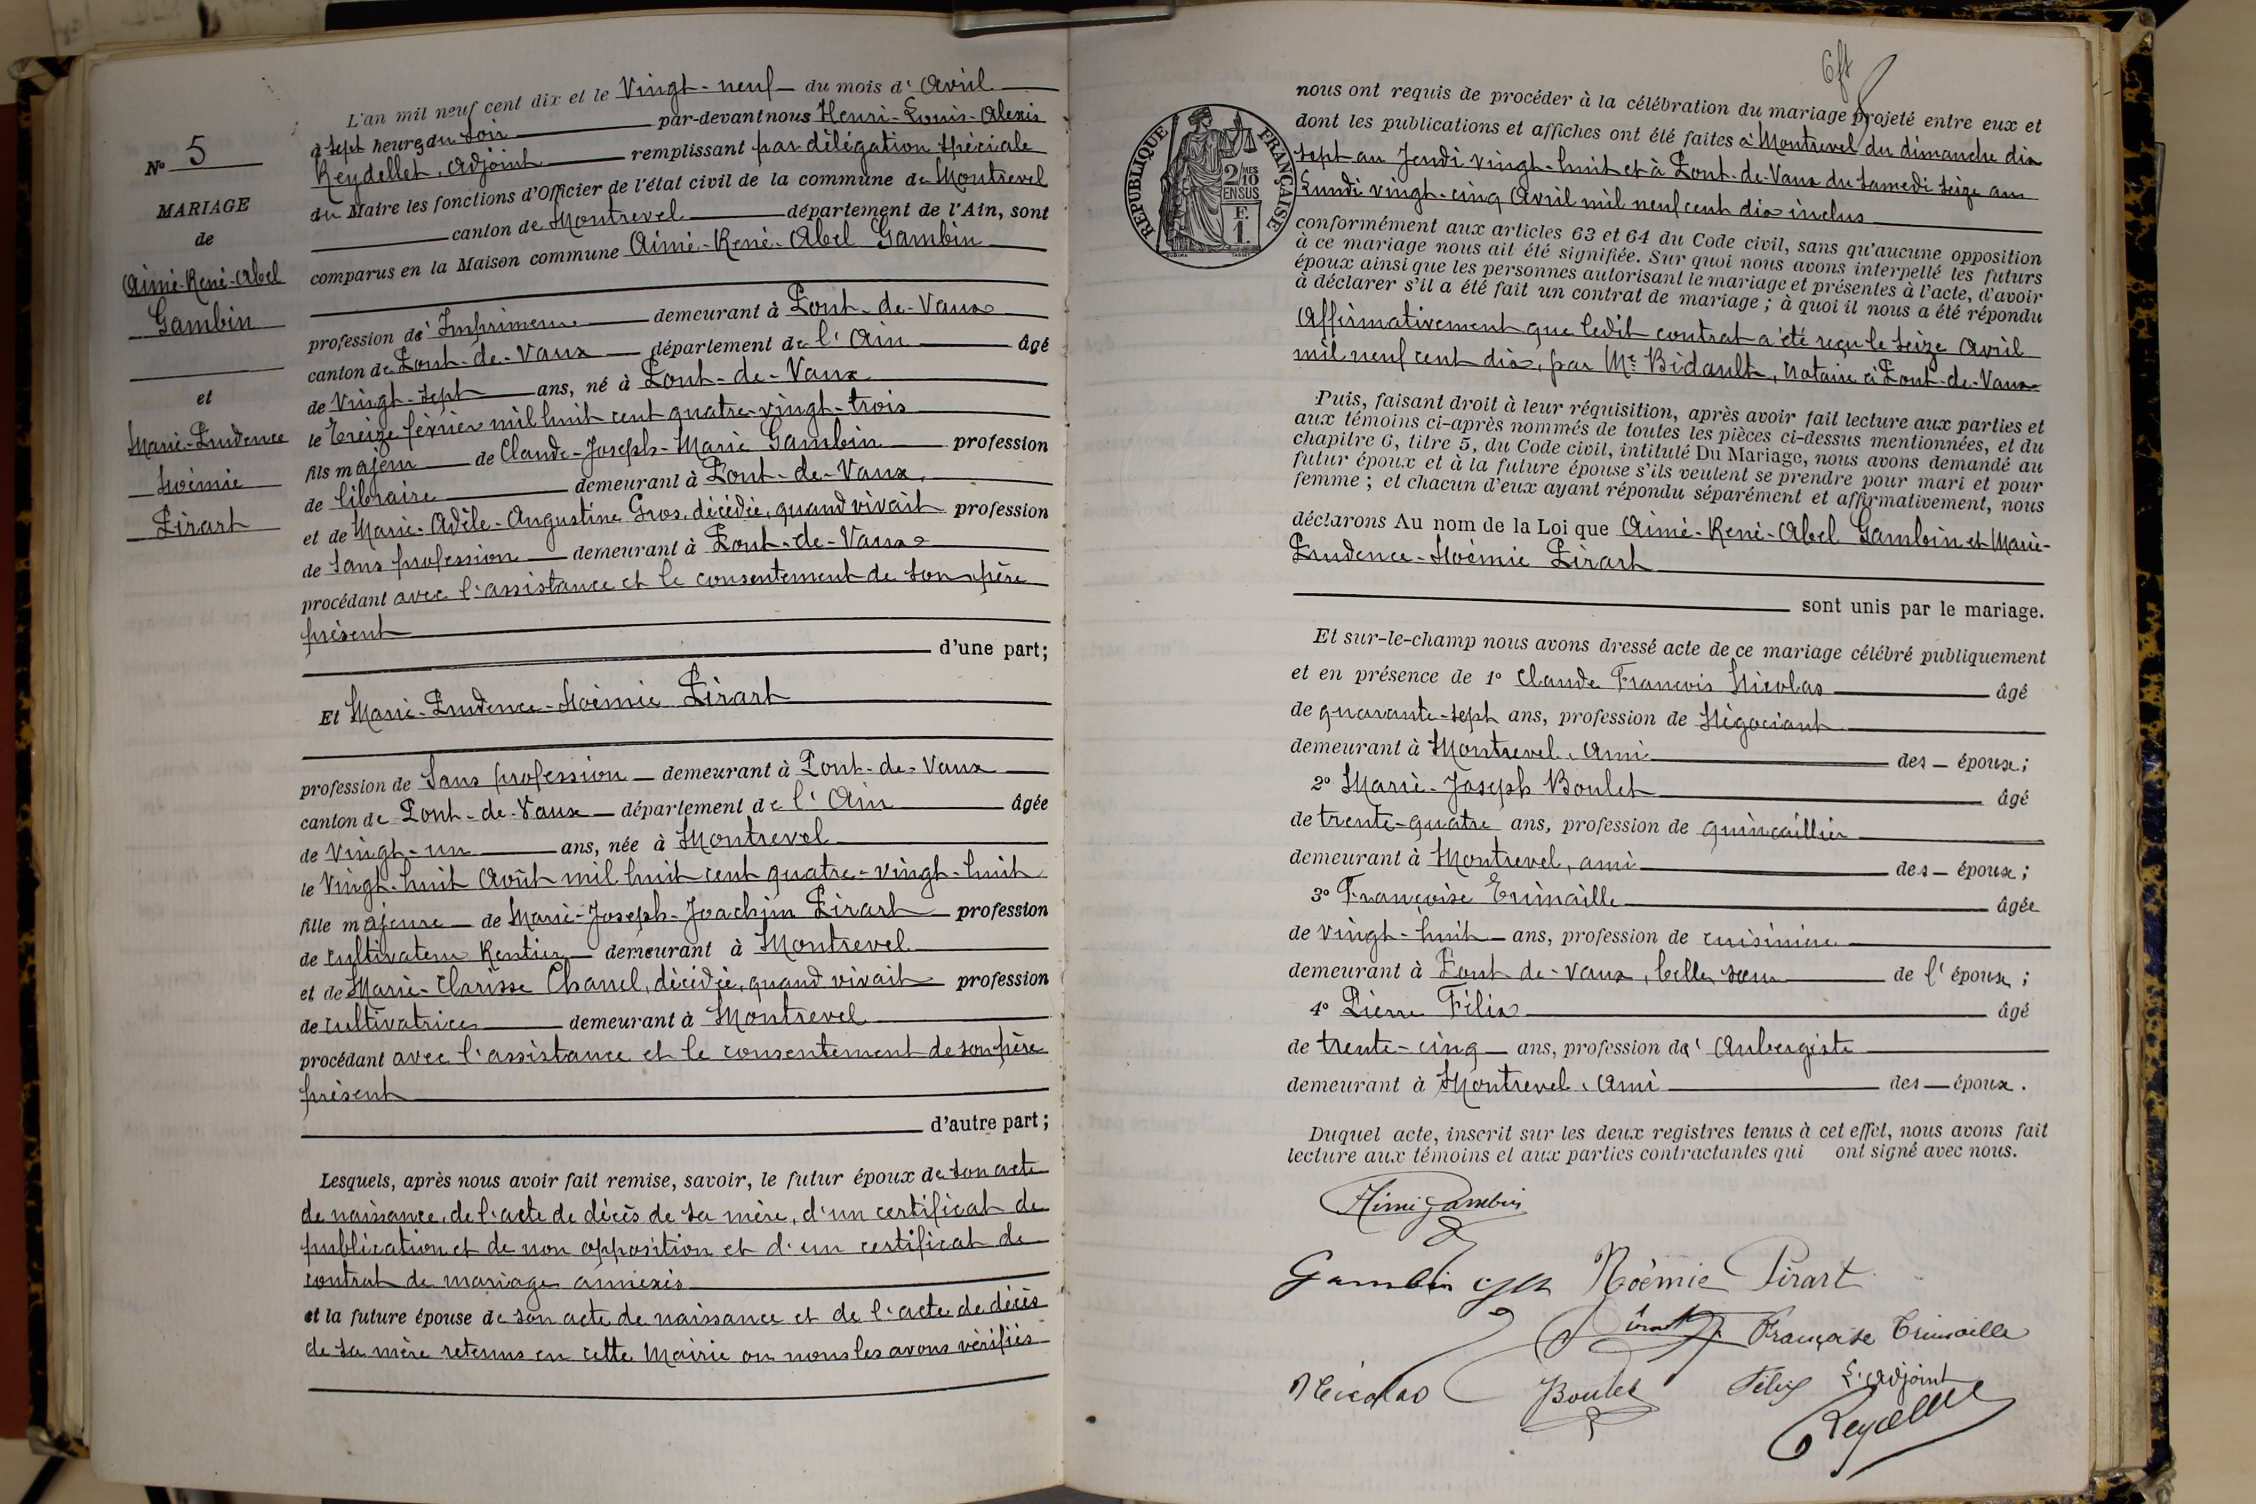 L'an mil neuf cent dix et le Vingt-neuf du mois d'Avril
à sept heures du soir par-devant nous Henri-Louis-Alexis
Reydellet, Adjoint remplissant par délégation spéciale
du Maire les fonctions d'Officier de l'état civil de la commune de Montrevel
canton de Montrevel département de l'Ain, sont
comparus en la Maison commune Aimé-René-Abel Gambin
profession d'Imprimeur demeurant à Pont-de-Vaux
canton de Pont-de-Vaux département de l'Ain âgé
de Vingt-sept ans, né à Pont-de-Vaux
le Treize février mil huit cent quatre-vingt-trois
fils majeur de Claude-Joseph-Marie Gambin profession
de libraire demeurant à Pont-de-Vaux,
et de Marie-Adèle-Augustine Gros, décédée, quand vivait profession
de Sans profession demeurant à Pont-de-Vaux
procédant avec l'assistance et le consentement de son père
présent
d'une part;
Et Marie-Prudence-Noémie Pirart
profession de Sans profession demeurant à Pont-de-Vaux
canton de Pont-de-Vaux département de l'Ain âgée
de Vingt-un ans, née à Montrevel
le Vingt-huit Août mil huit cent quatre-vingt-huit
fille majeure de Marie-Joseph-Joachim Pirart profession
de Cultivateur Rentier demeurant à Montrevel
et de Marie-Clarisse Chanel, décédée, quand vivait profession
de cultivatrice demeurant à Montrevel
procédant avec l'assistance et le consentement de son père
présent
d'autre part;
Lesquels, après nous avoir fait remise, savoir, le futur époux de son acte
de naissance, de l'acte de décès de sa mère, d'un certificat de
publication et de non opposition et d'un certificat de
contrat de mariage annexés
et la future épouse de son acte de naissance et de l'acte de décès
de sa mère retenus en cette Mairie ou nous les avons vérifiés
No 5
MARIAGE
de
Aimé-René-Abel
Gambin
et
Marie-Prudence
Noémie
Pirart
RÉPUBLIQUE FRANÇAISE
2/10 MES
EN SUS
F.
1.
nous ont requis de procéder à la célébration du mariage projeté entre eux et
dont les publications et affiches ont été faites à Montrevel du dimanche dix
sept au Jeudi vingt-huit et à Pont-de-Vaux du Samedi seize au
Lundi vingt-cinq Avril mil neuf cent dix inclus
conformément aux articles 63 et 64 du Code civil, sans qu'aucune opposition
à ce mariage nous ait été signifiée. Sur quoi nous avons interpellé les futurs
époux ainsi que les personnes autorisant le mariage et présentes à l'acte, d'avoir
à déclarer s'il a été fait un contrat de mariage; à quoi il nous a été répondu
Affirmativement que ledit contrat a été reçu le seize Avril
mil neuf cent dix, par Me Bidault, notaire à Pont-de-Vaux
Puis, faisant droit à leur réquisition, après avoir fait lecture aux parties et
aux témoins ci-après nommés de toutes les pièces ci-dessus mentionnées, et du
chapitre 6, titre 5, du Code civil, intitulé Du Mariage, nous avons demandé au
futur époux et à la future épouse s'ils veulent se prendre pour mari et pour
femme; et chacun d'eux ayant répondu séparément et affirmativement, nous
déclarons Au nom de la Loi que Aimé-René-Abel Gambin et Marie-
Prudence-Noémie Pirart
sont unis par le mariage.
Et sur-le-champ nous avons dressé acte de ce mariage célébré publiquement
et en présence de 1° Claude François Nicolas âgé
de quarante-sept ans, profession de Négociant
demeurant à Montrevel, ami des époux;
2° Marie-Joseph Boulet âgé
de trente-quatre ans, profession de quincaillier
demeurant à Montrevel, ami des époux;
3° Françoise Trimaille âgée
de vingt-huit ans, profession de cuisinière
demeurant à Pont-de-Vaux, belle sœur de l'épouse;
4° Pierre Félix âgé
de trente-cinq ans, profession d'Aubergiste
demeurant à Montrevel, ami des époux.
Duquel acte, inscrit sur les deux registres tenus à cet effet, nous avons fait
lecture aux témoins et aux parties contractantes qui ont signé avec nous.
Aimé Gambin
Gambin Noémie Pirart
Pirart Françoise Trimaille
Nicolas Boulet Félix L'adjoint
Reydellet